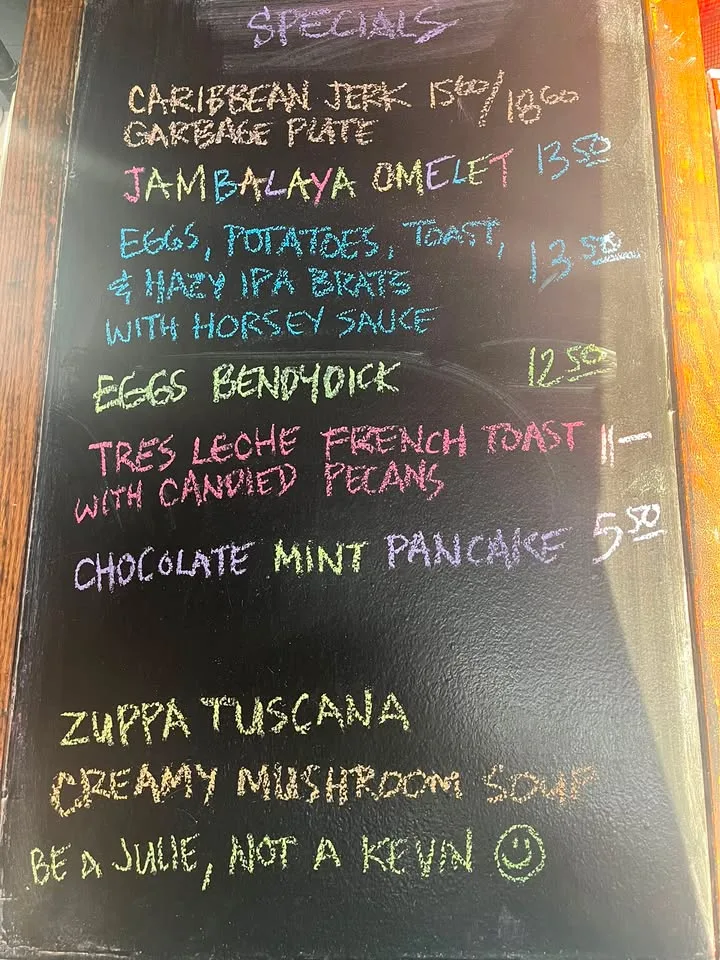 SPECIALS
CARIBBEAN JERK 15⁶⁰/18⁶⁰
GARBAGE PLATE
JAMBALAYA OMELET 13⁵⁰
EGGS, POTATOES, TOAST,
& HAZY IPA BRATS 13⁵⁰
WITH HORSEY SAUCE
EGGS BENDYDICK 12⁵⁰
TRES LECHE FRENCH TOAST 11—
WITH CANDIED PECANS
CHOCOLATE MINT PANCAKE 5⁵⁰
ZUPPA TUSCANA
CREAMY MUSHROOM SOUP
BE A JULIE, NOT A KEVIN ☺